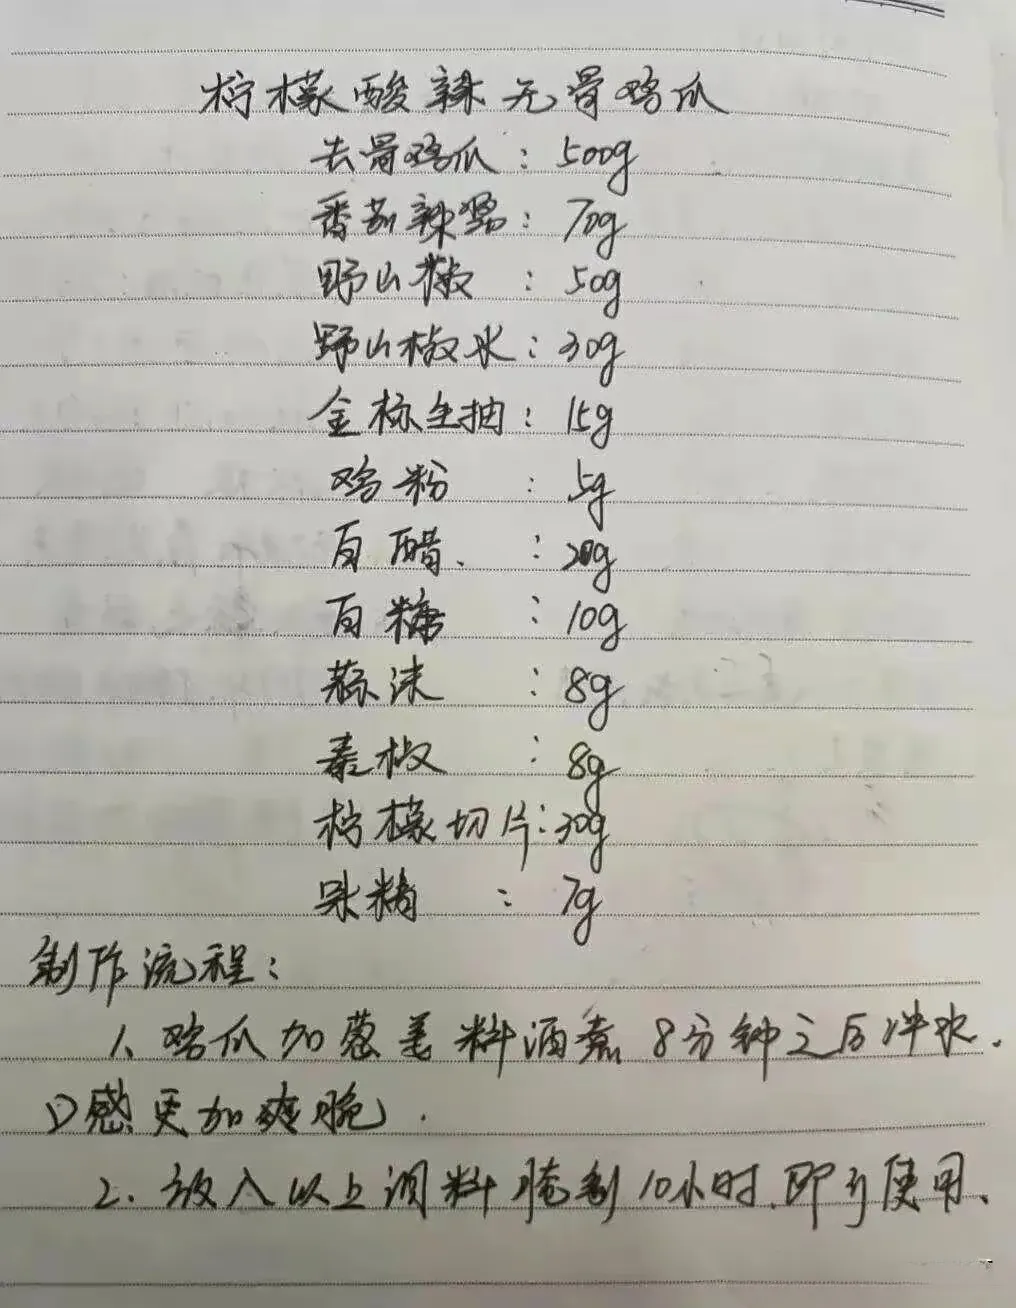 柠檬酸辣无骨鸡爪
去骨鸡爪：500g
番茄辣酱：70g
野山椒：50g
野山椒水：30g
金标生抽：15g
鸡粉：5g
白醋、：20g
白糖：10g
蒜沫：8g
秦椒：8g
柠檬切片：30g
味精：7g
制作流程：
1、鸡爪加葱姜料酒煮8分钟之后冲水.
口感更加爽脆.
2. 放入以上调料腌制10小时.即可使用、